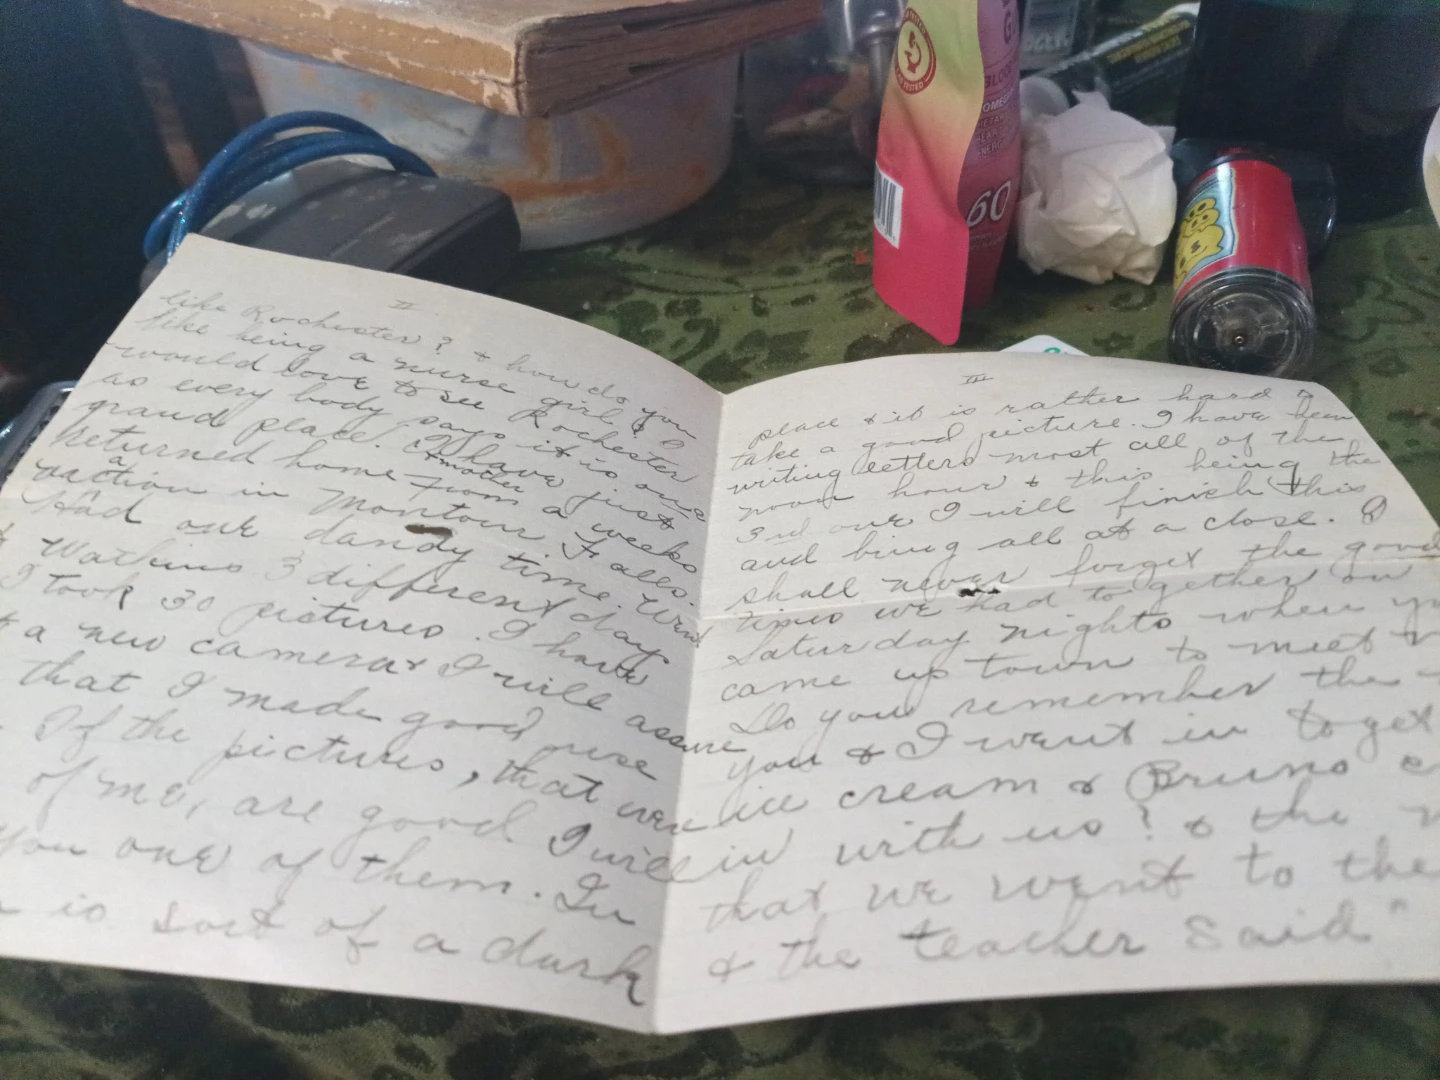 II
like Rochester? & how do you
like being a nurse girl? I
would love to see Rochester
as every body says it is one
grand place. I have just
returned home from a weeks
vaction in Montour Falls.
a
Had one dandy time. Went
Watkins 3 different days
I took 30 pictures. I have
a new camera & I will assure
that I made good use
If the pictures, that were
of me, are good I will
you one of them. In
is sort of a dark
III
place & it is rather hard to
take a good picture. I have been
writing letters most all of the
noon hour & this being the
3rd one I will finish this
and bring all at a close. I
shall never forget the good
times we had together on
Saturday nights when
came up town to meet
Do you remember the
you & I went in to get
ice cream & Bruno
in with us? & the
that we went to the
& the teacher said "
60